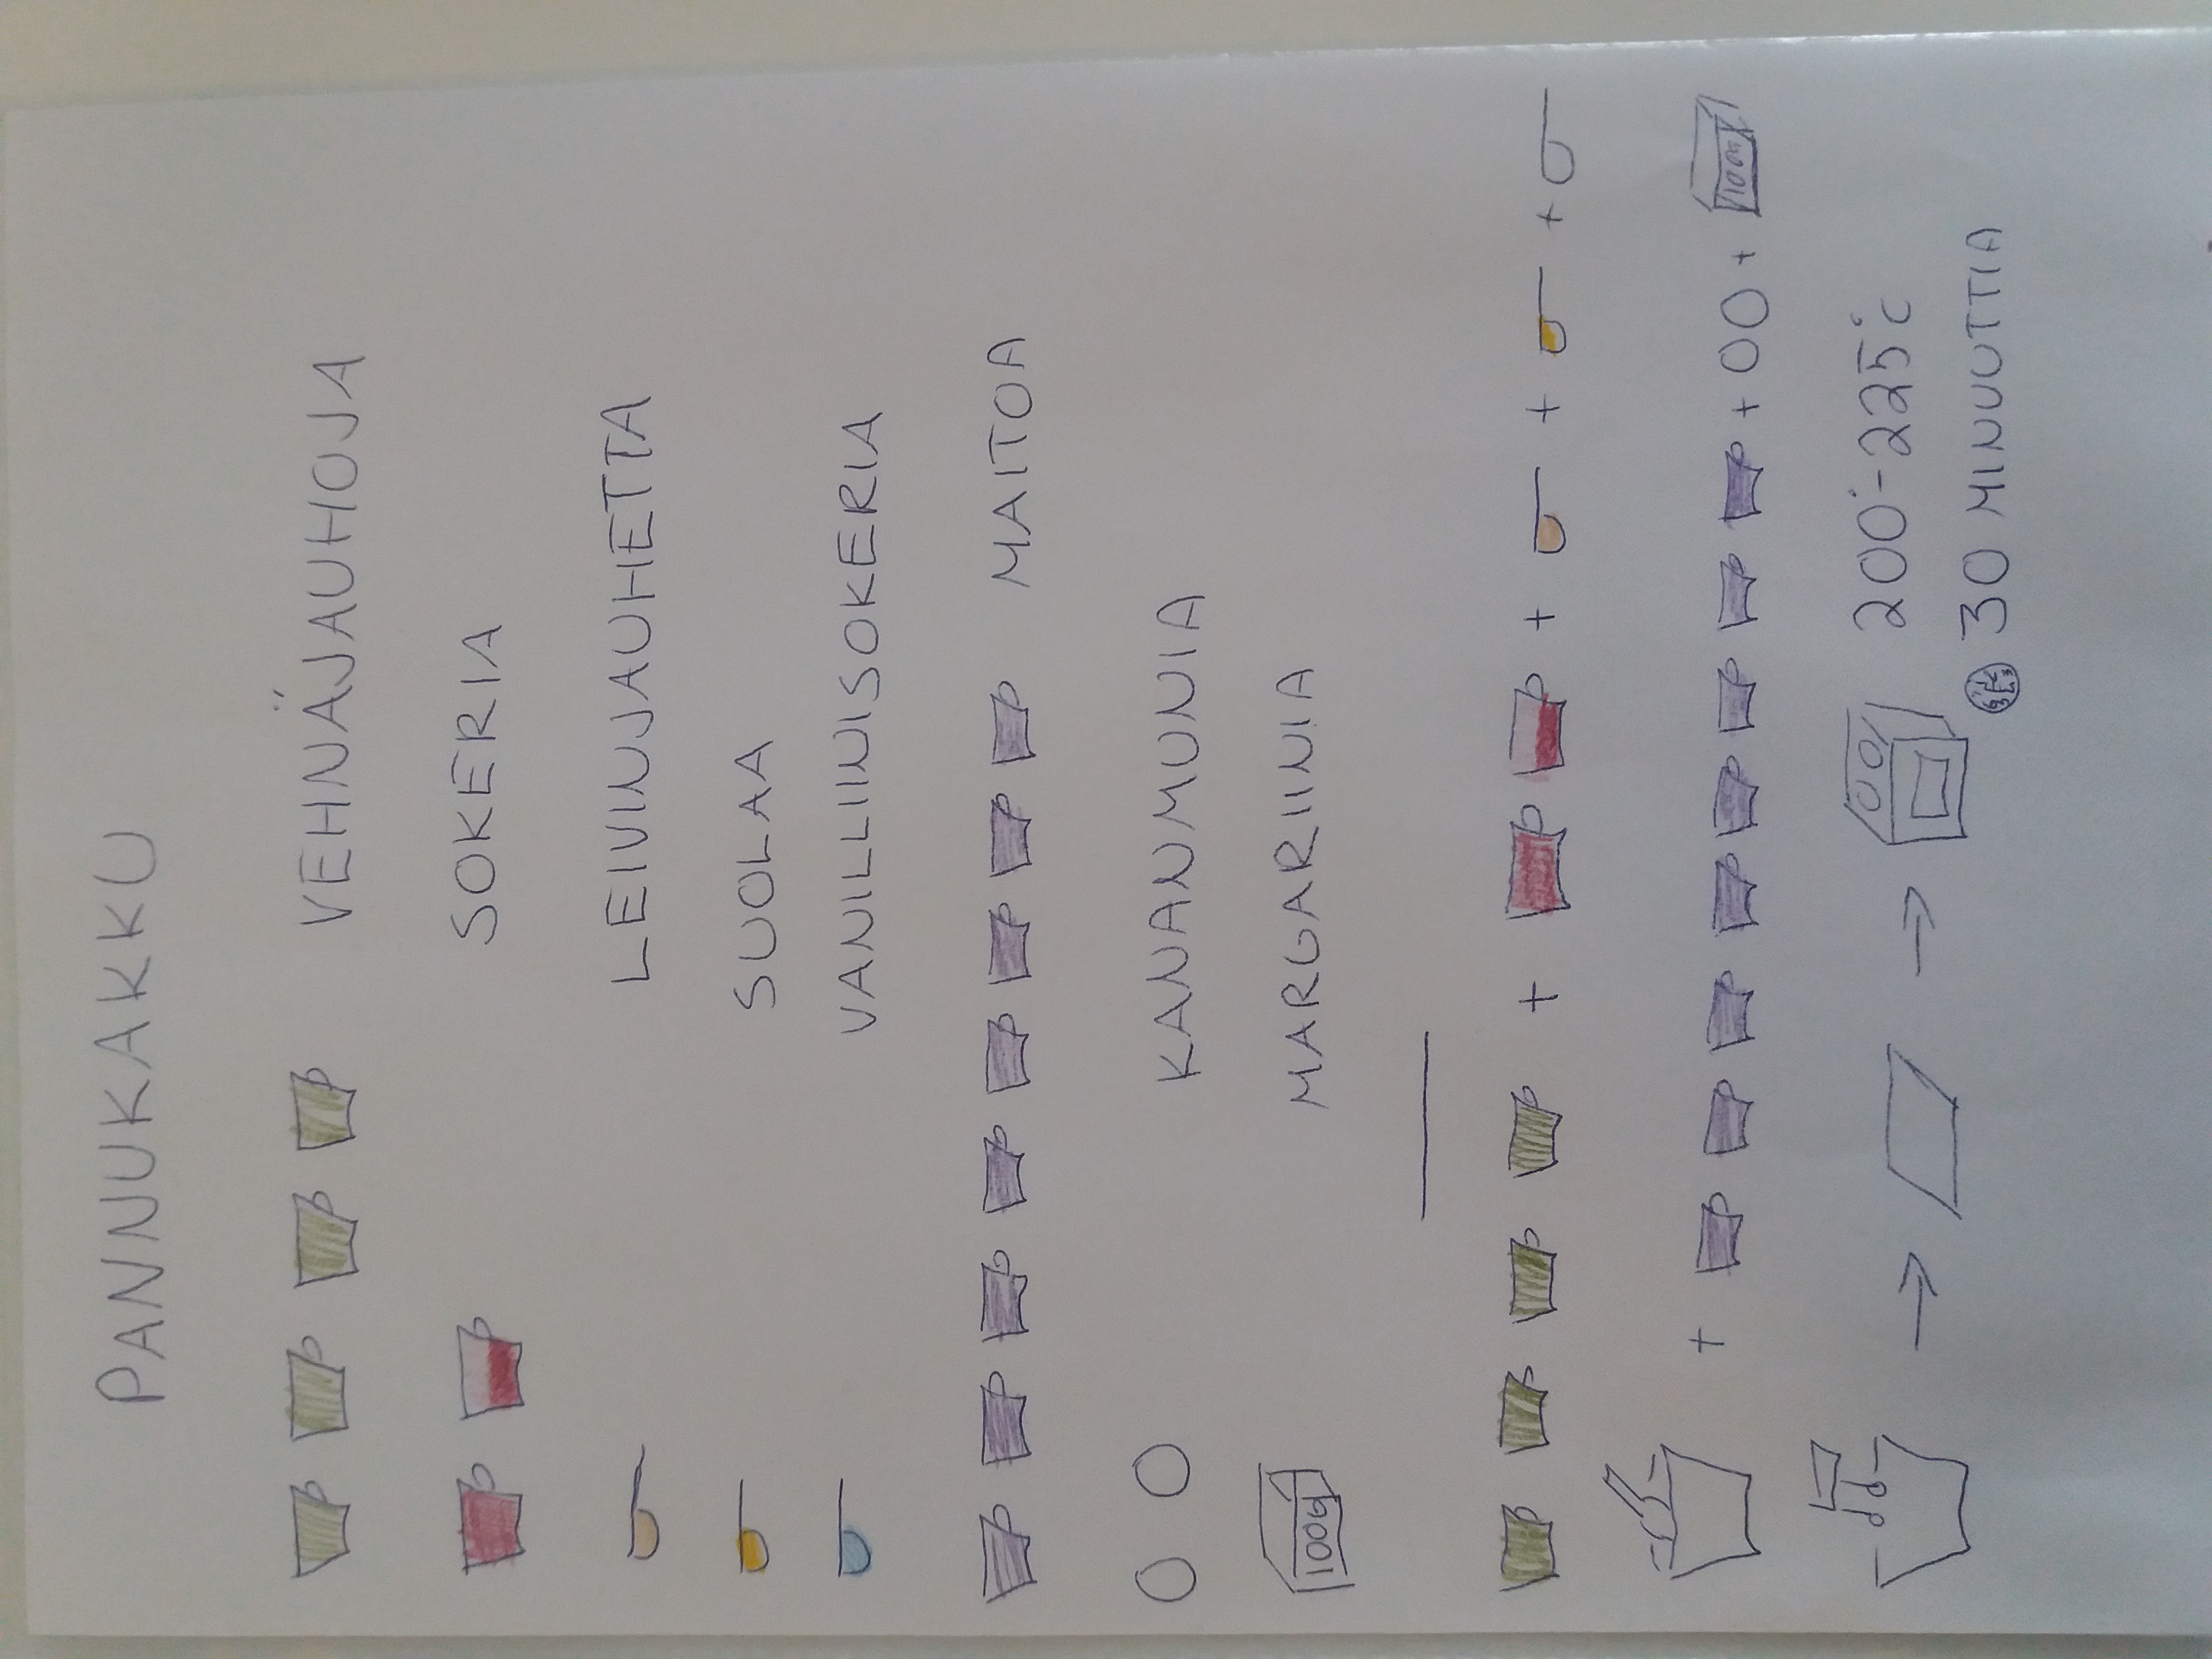 PANNUKAKKU
VEHNÄJAUHOJA
SOKERIA
LEIVINJAUHETTA
SUOLAA
VANILLIINISOKERIA
MAITOA
KANANMUNIA
100g MARGARIINIA
+ + + + +
+ + + 100g
200°-225°C
30 MINUUTTIA